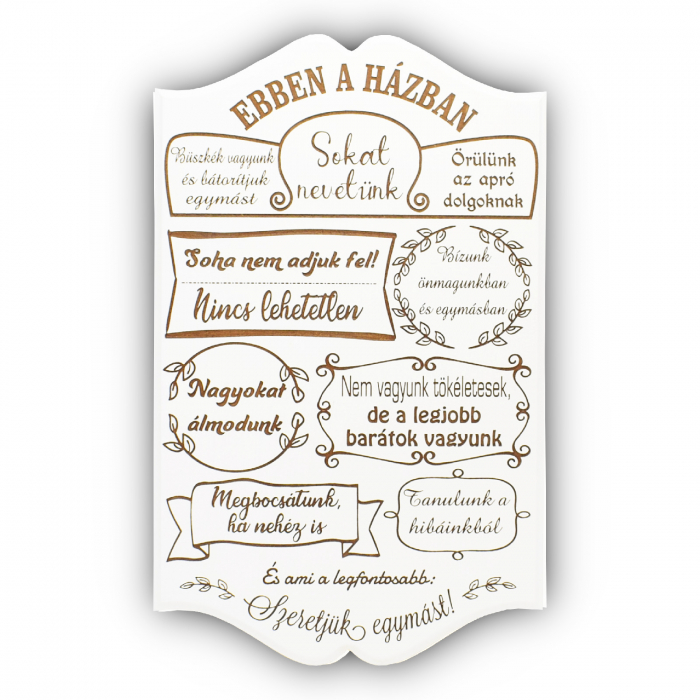 EBBEN A HÁZBAN
Büszkék vagyunk
és bátorítjuk
egymást
Sokat
nevetünk
Örülünk
az apró
dolgoknak
Soha nem adjuk fel!
Nincs lehetetlen
Bízunk
önmagunkban
és egymásban
Nagyokat
álmodunk
Nem vagyunk tökéletesek,
de a legjobb
barátok vagyunk
Megbocsátunk,
ha nehéz is
Tanulunk a
hibáinkból
És ami a legfontosabb:
Szeretjük egymást!